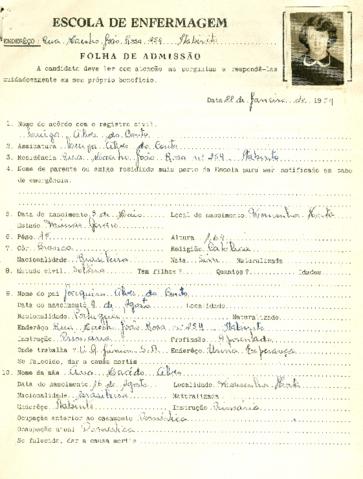 ESCOLA DE ENFERMAGEM
ENDERÊÇO: Rua João Rosa 254 Itabirito
FOLHA DE ADMISSÃO
A candidata deve ler com atenção as perguntas e respondê-las
cuidadosamente em seu próprio benefício.
Data 22 de Janeiro de 1959
1. Nome de acordo com o registro civil.
Alves do Couto
2. Assinatura Alves do Couto
3. Residência Rua João Rosa nº 254 Itabirito
4. Nome de parente ou amigo residindo mais perto da Escola para ser notificado em caso
de emergência.
5. Data do nascimento 5 de Maio Local do nascimento
Estado Minas Gerais
6. Pêso Altura 1,64
7. Côr Branca Religião Católica
Nacionalidade Brasileira Nata. Sim Naturalizada
8. Estado civil. Solteira Tem filhos? Quantos? Idades
9. Nome do pai Joaquim Alves do Couto
Data do nascimento de Agosto Localidade
Nacionalidade Português Naturalizado
Enderêço Rua João Rosa nº 254 Itabirito
Instrução Primária Profissão Aposentado
Onde trabalha S.A. Enderêço Esperança
Se falecido, dar a causa mortis
10. Nome da mãe Macêdo Alves
Data do nascimento 16 de Agosto Localidade
Nacionalidade Brasileira Naturalizada
Enderêço Itabirito Instrução Primária
Ocupação anterior ao casamento Doméstica
Ocupação atual Doméstica
Se falecida, dar a causa mortis